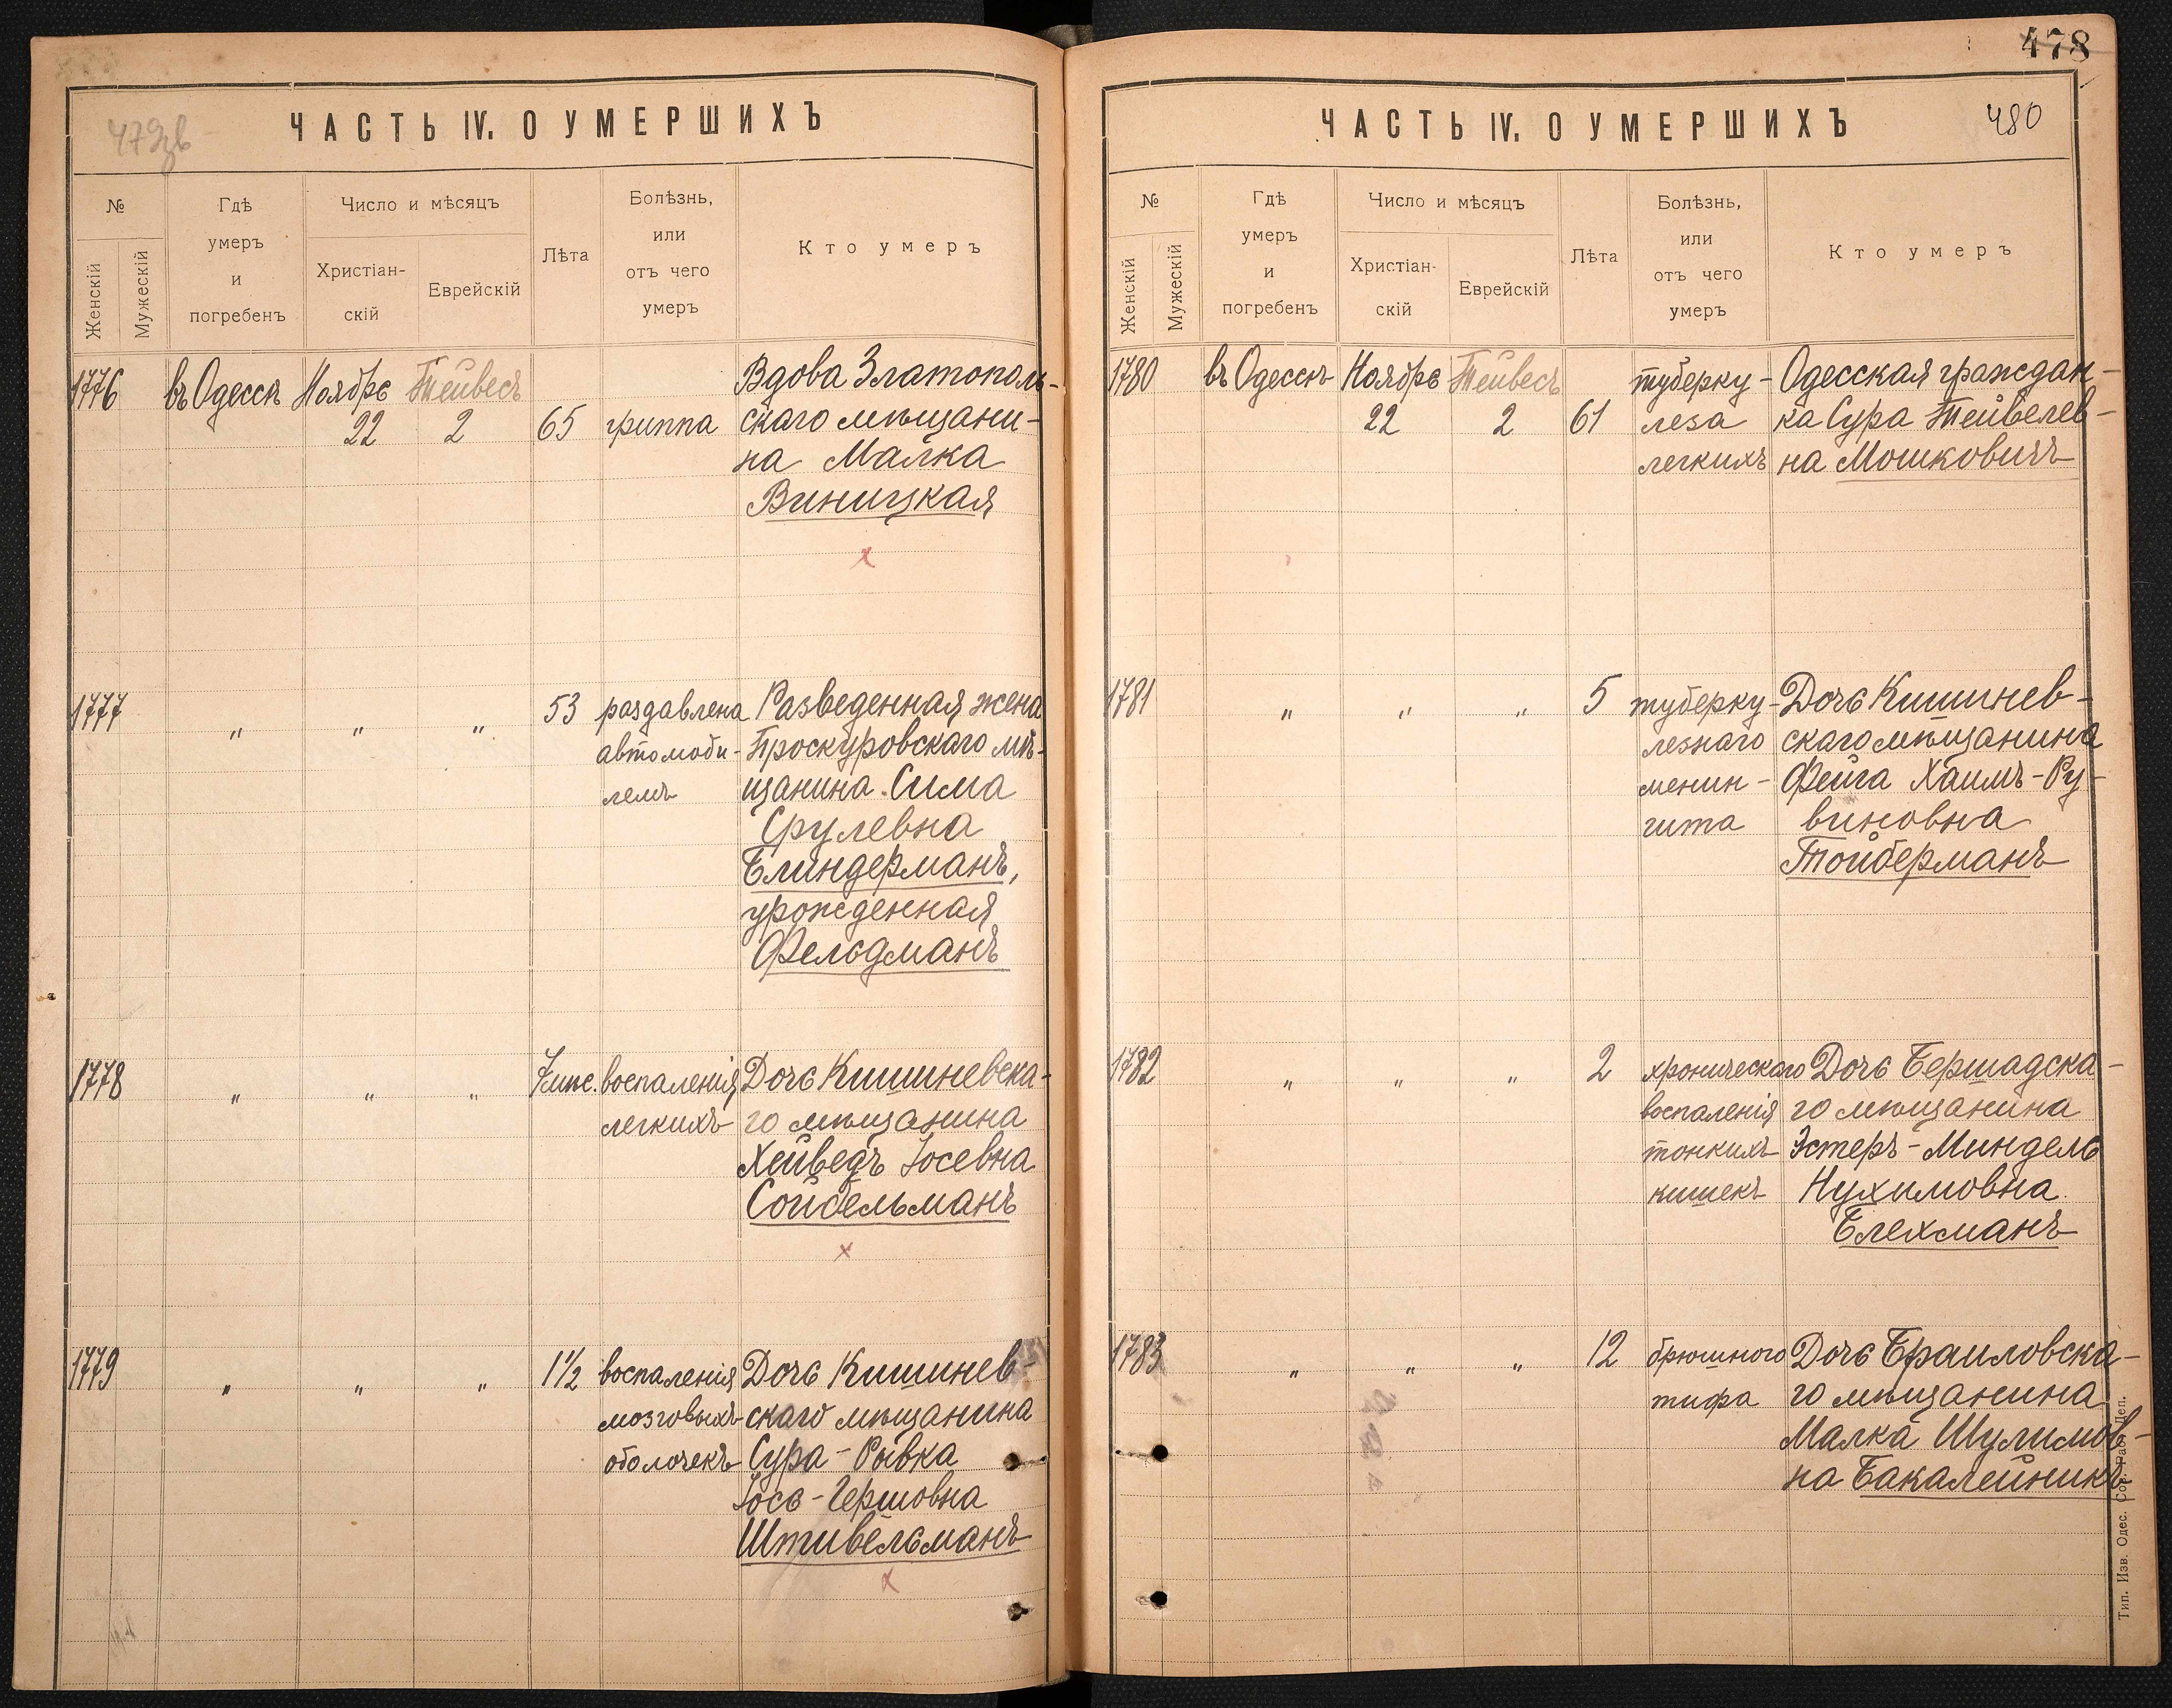 ЧАСТЬ IV. О УМЕРШИХЪ
№
Женскій
Мужескій
Гдѣ
умеръ
и
погребенъ
Число и мѣсяцъ
Христіан-
скій
Еврейскій
Лѣта
Болѣзнь,
или
отъ чего
умеръ
Кто умеръ
1776
въ Одессѣ
Ноябрь
22
Тейвесъ
2
65
гриппа
Вдова Златополь-
скаго мѣщани-
на Малка
Виницкая
х
1777
„
„
„
53
раздавлена
автомоби-
лемъ
Разведенная жена
Проскуровскаго мѣ-
щанина Сима
Срулевна
Блиндерманъ,
урожденная
Фельдманъ
1778
„
„
„
7 мѣс.
воспаленія
легкихъ
Дочь Кишиневска-
го мѣщанина
Хейведъ Іосевна
Сойбельманъ
х
1779
„
„
„
1½
воспаленія
мозговыхъ
оболочекъ
Дочь Кишинев-
скаго мѣщанина
Сура-Рывка
Іось-Гершовна
Штивельманъ
х
478
ЧАСТЬ IV. О УМЕРШИХЪ
480
№
Женскій
Мужескій
Гдѣ
умеръ
и
погребенъ
Число и мѣсяцъ
Христіан-
скій
Еврейскій
Лѣта
Болѣзнь,
или
отъ чего
умеръ
Кто умеръ
1780
въ Одессѣ
Ноябрь
22
Тейвесъ
2
61
туберку-
леза
легкихъ
Одесская граждан-
ка Сура Тейвелев-
на Мошковичъ
1781
„
„
„
5
туберку-
лезнаго
менин-
гита
Дочь Кишинев-
скаго мѣщанина
Фейга Хаимъ-Ру-
виновна
Тойберманъ
1782
„
„
„
2
хроническаго
воспаленія
тонкихъ
кишекъ
Дочь Бершадска-
го мѣщанина
Эстеръ-Миндель
Нухимовна
Блехманъ
1783
„
„
„
12
брюшного
тифа
Дочь Браиловска-
го мѣщанина
Малка Шулимов-
на Бакалейникъ
Тип. Изв. Одес. Сов. Раб. Деп.